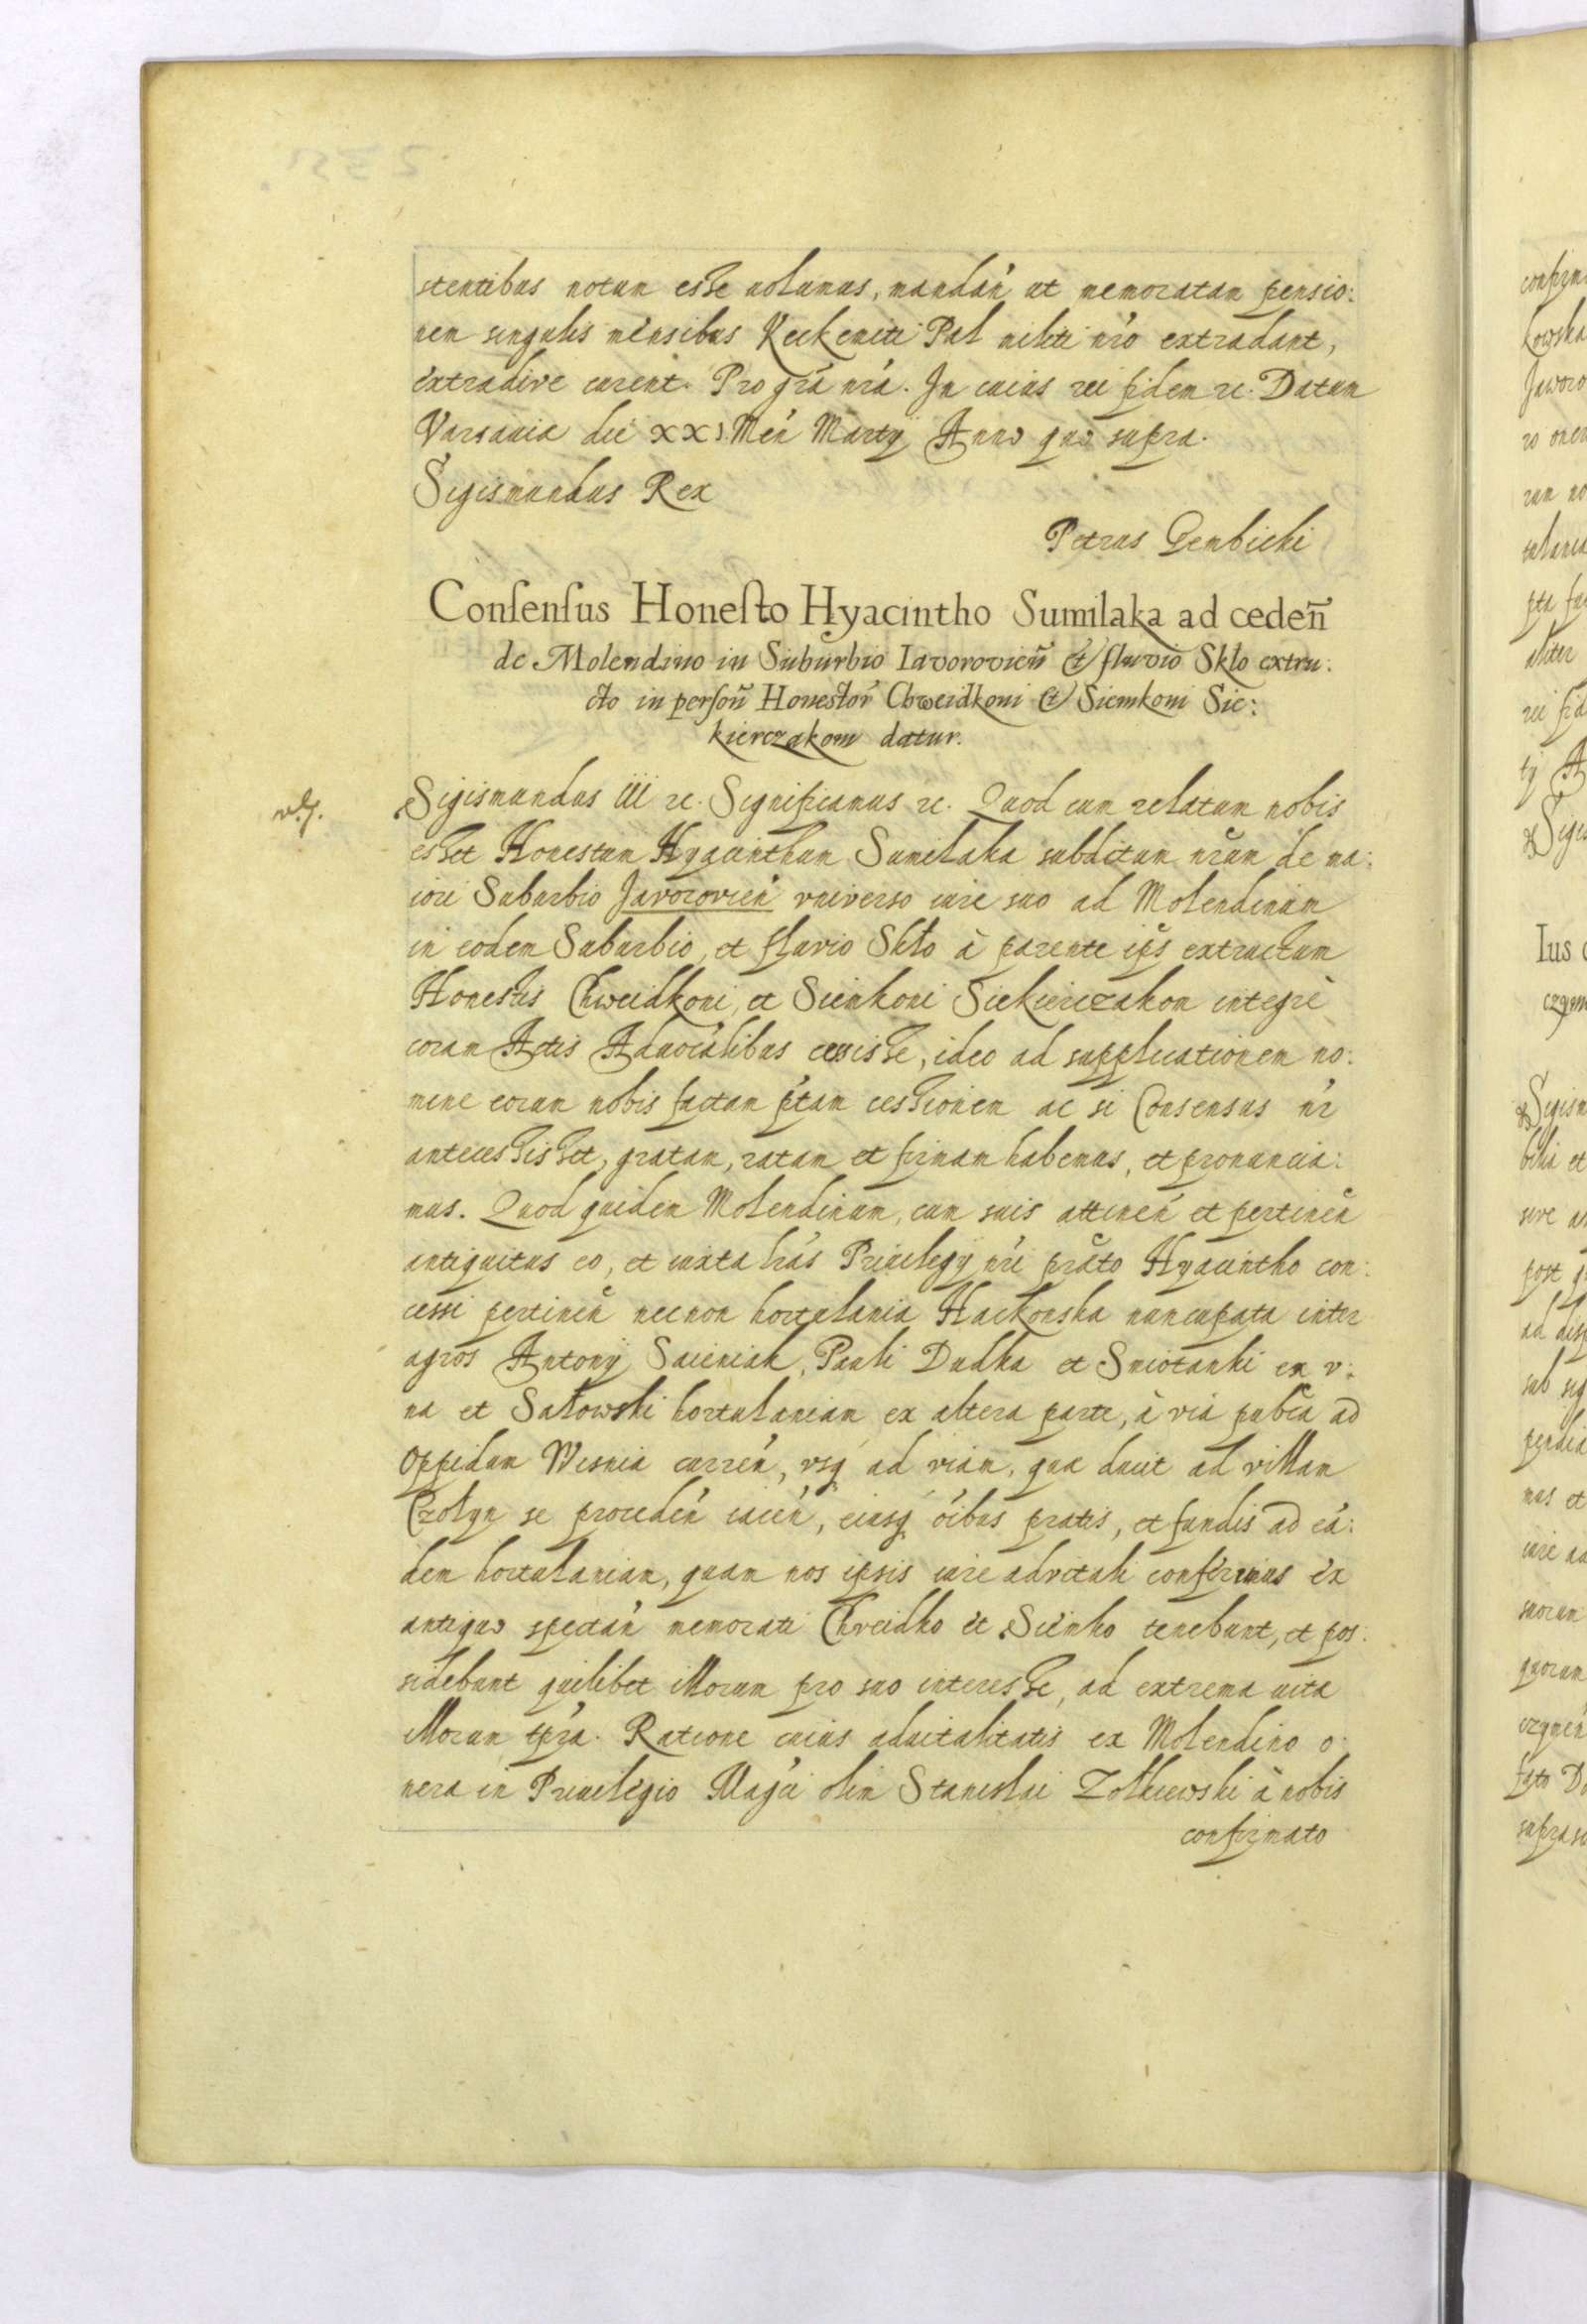 stentibus notum esse uolumus, mandań ut memoratam pensio:
nem singulis mensibus Keckemeti Pal militi nŕo extradant,
extradive curent. Pro grá nrá. In cuius rei fidem rc. Datum
Varsauia die XXI Meń Martij Anno quo supra.
Sigismundus Rex
Petrus Gembicki
Conſenſus Honeſto Hyacintho Sumilaka ad ceden̄
de Molendino in Suburbio Iavorovien̄ & fluvio Sklo extru:
cto in perſon̄ Honestor̄ Chweidkoni & Siemkoni Sie:
kierczakom datur.
Sigismundus III rc. Significamus rc. Quod cum relatum nobis
esset Honestum Hyacinthum Sumilaka subditum nrum de ma:
iori Suburbio Javorovień vniverso iure suo ad Molendinum
in eodem Suburbio, et fluvio Skło à parente ips extructum
Honestis Chweidkoni, et Siemkoni Siekierczakom integrè
coram Actis Aduocalibus cessisse, ideo ad supplicationem no:
mine eorum nobis factam ptam cessionem ac si Consensus nr
antecessisset, gratam, ratam et firmam habemus, et pronuncia:
mus. Quod quidem Molendinum, cum suis attineń et pertineń
antiquitus eo, et iuxta lras Priuilegij nri prato Hyacintho con:
cessi pertineń necnon hortulania Hackonska nuncupata inter
agros Antonij Sauiniak, Pauli Dudka et Smiotanki ex v:
na et Sałowski hortulaniam ex altera parte, à via pubca ad
Oppidum Wisnia curreń, vsq ad viam, qua ducit ad villam
Czołyn se procedeń iaceń, eiusq oibus pratis, et fundis ad eá:
dem hortulaniam, quam nos ipsis iure advitali conferimus ex
antiquo spectań memorati Chveidko et Siemko tenebunt, et pos:
sidebunt quilibet illorum pro suo interesse, ad extrema uitæ
illorum tpra. Ratione cuius aduitalitatis ex Molendino o:
nera in Priuilegio Magci olim Stanislai Zołkiewski à nobis
confirmato